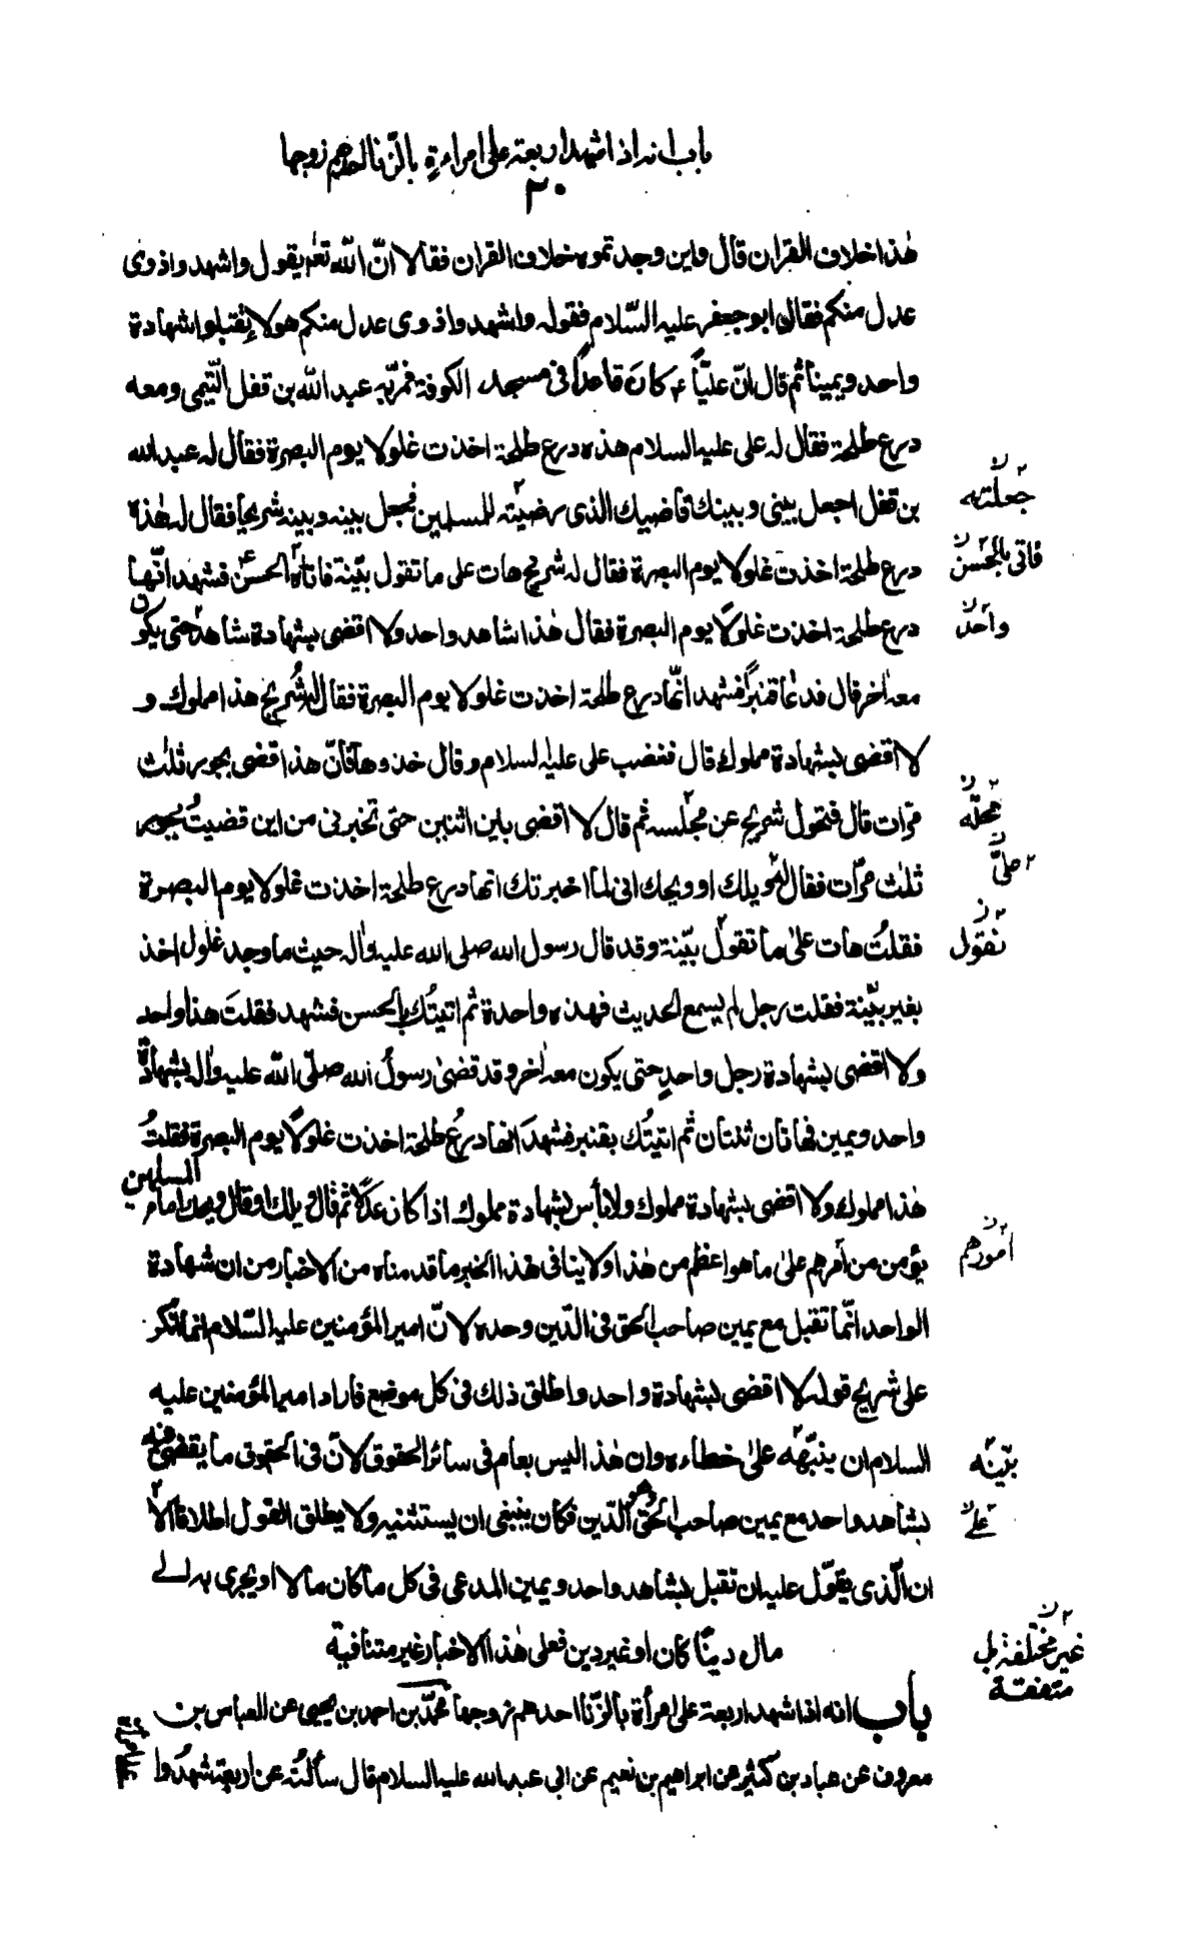 باب انه اذا شهد اربعة على امراءةٍ بالزّنا احدهم زوجها
٢٠
هٰذا خلاف القران قال واين وجدتموه خلاف القران فقالا انّ الله تعٰم يقول واشهدوا ذوى
عدل منكم فقال ابو جعفر عليه السّلام فقوله واشهدوا ذوى عدل منكم هو لا تقبلوا شهادة
واحد ويمينا ثم قال انّ عليّاً ع كان قاعدًا فى مسجد الكوفة فمرّ به عبد الله بن قفل التّيمى ومعه
درع طلحة فقال له على عليه السلام هذه درع طلحة اخذت غلولا يوم البصرة فقال له عبد الله
جعلته
بن قفل اجعل بينى وبينك قاضيك الذى رضيته للمسلمين فجعل بينه وبينه شريحا فقال له هٰذه
فاتى بالحسن
درع طلحة اخذت غلولا يوم البصرة فقال له شريح هات على ما تقول بيّنة فاتاه الحسن ع فشهد انّها
واحد
درع طلحة اخذت غلولًا يوم البصرة فقال هٰذا شاهد واحد ولا اقضى بشهادة شاهد حتى يكون
معه اٰخر قال فدعا قنبرًا فشهد انّها درع طلحة اخذت غلولا يوم البصرة فقال شُريح هذا مملوك و
لا اقضى بشهادة مملوك قال فغضب على عليه السلام وقال خذوها فانّ هذا قضى بجور ثلٰث
محلّه
مرّات قال فتحول شريح عن مجلسه ثم قال لا اقضى بين اثنين حتى تخبرنى من اين قضيتُ بجور
علىّ
ثلٰث مرّات فقال له ويلك او ويحك انى لما اخبرتك انها درع طلحة اخذت غلولا يوم البصرة
نقول
فقلتُ هات علىٰ ما تقول بيّنة وقد قال رسول الله صلى الله عليه واٰله حيث ما وجد غلول اخذ
بغير بيّنة فقلت رجل لم يسمع الحديث فهذه واحدة ثم اتيتُك بالحسن فشهد فقلتَ هذا واحد
ولا اقضى بشهادة رجل واحدٍ حتى يكون معه اٰخر وقد قضىٰ رسولُ الله صلّى الله عليه واٰله بشهادة
واحد ويمين فهاتان ثنتان ثم اتيتُك بقنبر فشهدَ انها درعُ طلحة اخذت غلولًا يوم البصرة فقلتُ
هٰذا مملوك ولا اقضى بشهادة مملوك ولا باس بشهادة مملوك اذا كان عدلًا ثم قال ويلك او قال ويحك امام المسلمين
امورهم
يؤمن من امرهم علىٰ ما هو اعظم من هٰذا ولا ينافى هذا الخبر ما قدمناه من الاخبار من ان شهادة
الواحد انّما تقبل مع يمين صاحب الحق فى الدّين وحده لانّ امير المؤمنين عليه السّلام انما انكر
على شريح قوله لا اقضى بشهادة واحد واطلق ذلك فى كل موضع فاراد امير المؤمنين عليه
بيّنه
السلام ان ينبّهه علىٰ خطاءه وان هٰذا ليس بعام فى سائر الحقوق لانّ فى الحقوق ما يقضى فيه
على
بشاهد واحد مع يمين صاحب الحق وهو الدّين فكان ينبغى ان يستثنيه ولا يطلق القول اطلاقا الا
ان الّذى يقوّل عليه ان تقبل بشاهد واحد ويمين المدعى فى كل ما كان مالا او يجرى به الى
غير مختلفة بل
متفقة
مال دينًا كان او غير دين فعلى هٰذا الاخبار غير متنافية
باب انه اذا شهد اربعة على امرأة بالزّنا احدهم زوجها محمّد بن احمد بن يحيى عن العباس بن
معروف عن عباد بن كثير عن ابراهيم بن نعيم عن ابى عبد الله عليه السلام قال سألتُه عن اربعة شهدُوا